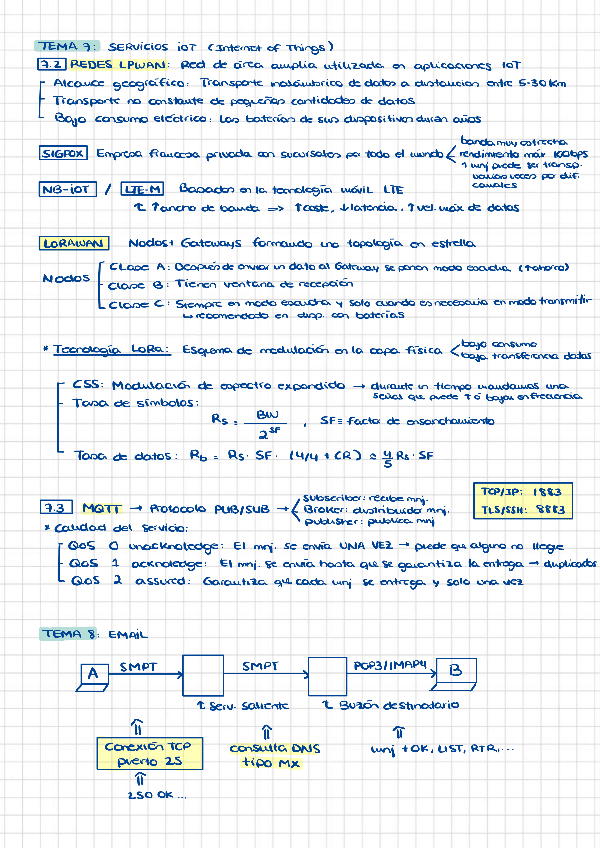 TEMA 7: SERVICIOS IoT (Internet of Things)
7.2 REDES LPWAN: Red de área amplia utilizada en aplicaciones IoT
Alcance geográfico: Transporte inalámbrico de datos a distancias entre 5-30Km
Transporte no constante de pequeñas cantidades de datos
Bajo consumo eléctrico: Las baterías de sus dispositivos duran años
SIGFOX Empresa francesa privada con sucursales por todo el mundo
banda muy estrecha
rendimiento máx 100bps
1 mnj puede ser transp.
varias veces por dif.
canales
NB-IoT / LTE-M Basados en la tecnología móvil LTE
↑ ancho de banda => ↑ coste, ↓ latencia, ↑ vel. máx de datos
LORAWAN Nodos + Gateways formando una topología en estrella
Nodos
CLase A: Después de enviar un dato al Gateway se ponen modo escucha (+ahorro)
CLase B: Tienen ventana de recepción
CLase C: Siempre en modo escucha y solo cuando es necesario en modo transmitir
↳ recomendado en disp. con baterías
* Tecnología LoRa: Esquema de modulación en la capa física
bajo consumo
baja transferencia datos
CSS: Modulación de espectro expandido → durante un tiempo mandamos una
señal que puede ↑ o bajar en frecuencia
Tasa de símbolos:
Rs = BW / 2^SF , SF ≡ factor de ensanchamiento
Tasa de datos: Rb = Rs · SF · (4/4 + CR) ≈ 4/5 Rs · SF
7.3 MQTT → Protocolo PUB/SUB →
Subscriber: recibe mnj.
Broker: distribuido mnj.
publisher: publica mnj
TCP/IP: 1883
TLS/SSH: 8883
* Calidad del servicio:
QoS 0 unacknoledge: El mnj. se envía UNA VEZ → puede que alguno no llegue
QoS 1 acknoledge: El mnj. se envía hasta que se garantiza la entrega → duplicados
QoS 2 assured: Garantiza que cada mnj se entrega y solo una vez
TEMA 8: EMAIL
A SMPT SMPT POP3/IMAP4 B
↑ Serv. saliente ↑ Buzón destinatario
Conexión TCP
puerto 25
consulta DNS
tipo MX
mnj +OK, LIST, RTR,...
250 OK...